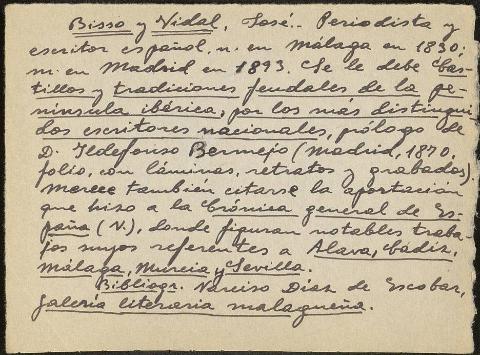 Bisso y Vidal, José.- Periodista y
escritor español. n. en Málaga en 1830;
m. en Madrid en 1893. Se le debe Cas-
tillos y tradiciones feudales de la pe-
nínsula ibérica, por los más distingui-
dos escritores nacionales, prólogo de
D. Ildefonso Bermejo (Madrid, 1870,
folio, con láminas, retratos y grabados).
Merece también citarse la aportación
que hizo a la Crónica general de Es-
paña (V.), donde figuran notables traba-
jos suyos referentes a Alava, Cádiz,
Málaga, Murcia y Sevilla.
Bibliogr. Narciso Díaz de Escobar,
Galería literaria malagueña.